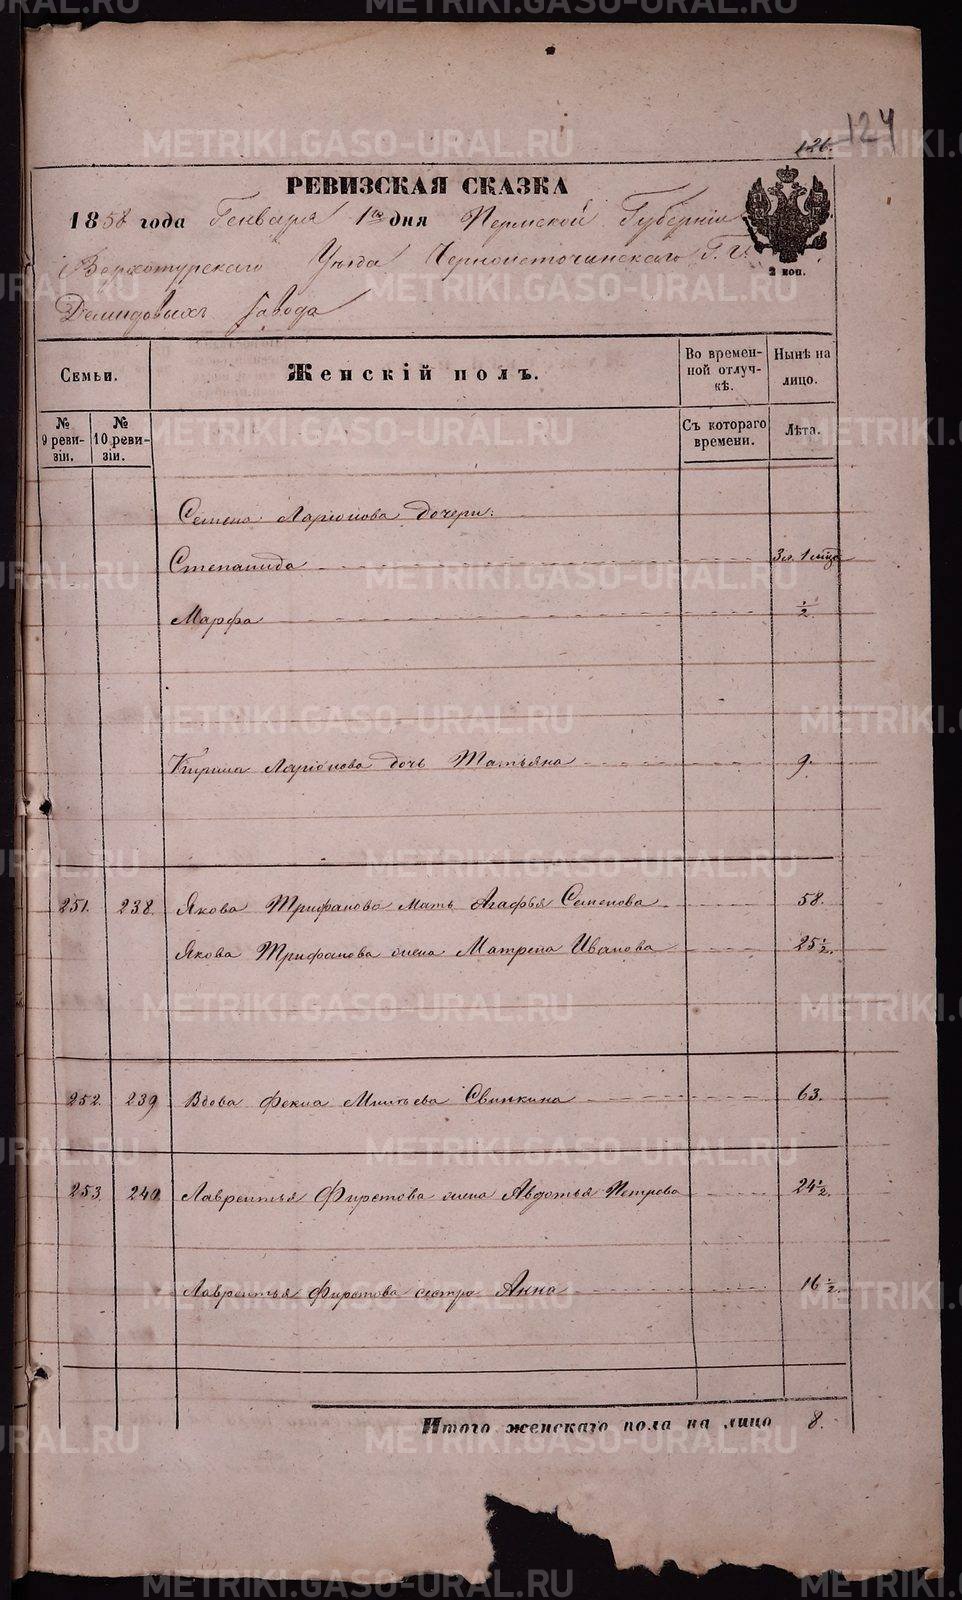 124
126.
РЕВИЗСКАЯ СКАЗКА
1858 года Генваря 1го дня Пермской Губерніи
Верхотурскаго Уѣзда Черноисточинскаго Г.Г.
2 коп.
Демидовыхъ Завода
Семьи. Женскій полъ. Во времен-ной отлуч-кѣ. Нынѣ на лицо.
№ 9 реви-зіи. № 10 реви-зіи. Съ котораго времени. Лѣта.
Семена Ларіонова дочери:
Степанида 3 л. 1 мѣца
Марфа ½
Кирила Ларіонова дочь Татьяна 9.
251. 238. Якова Трифанова мать Агафья Семенова 58.
Якова Трифанова жена Матрена Иванова 25½.
252. 239 Вдова Фекла Свинкина 63.
253. 240 Лаврентья Фирстова жена Авдотья Петрова 24½.
Лаврентья Фирстова сестра Анна 16½.
Итого женскаго пола на лицо 8.
METRIKI.GASO-URAL.RU